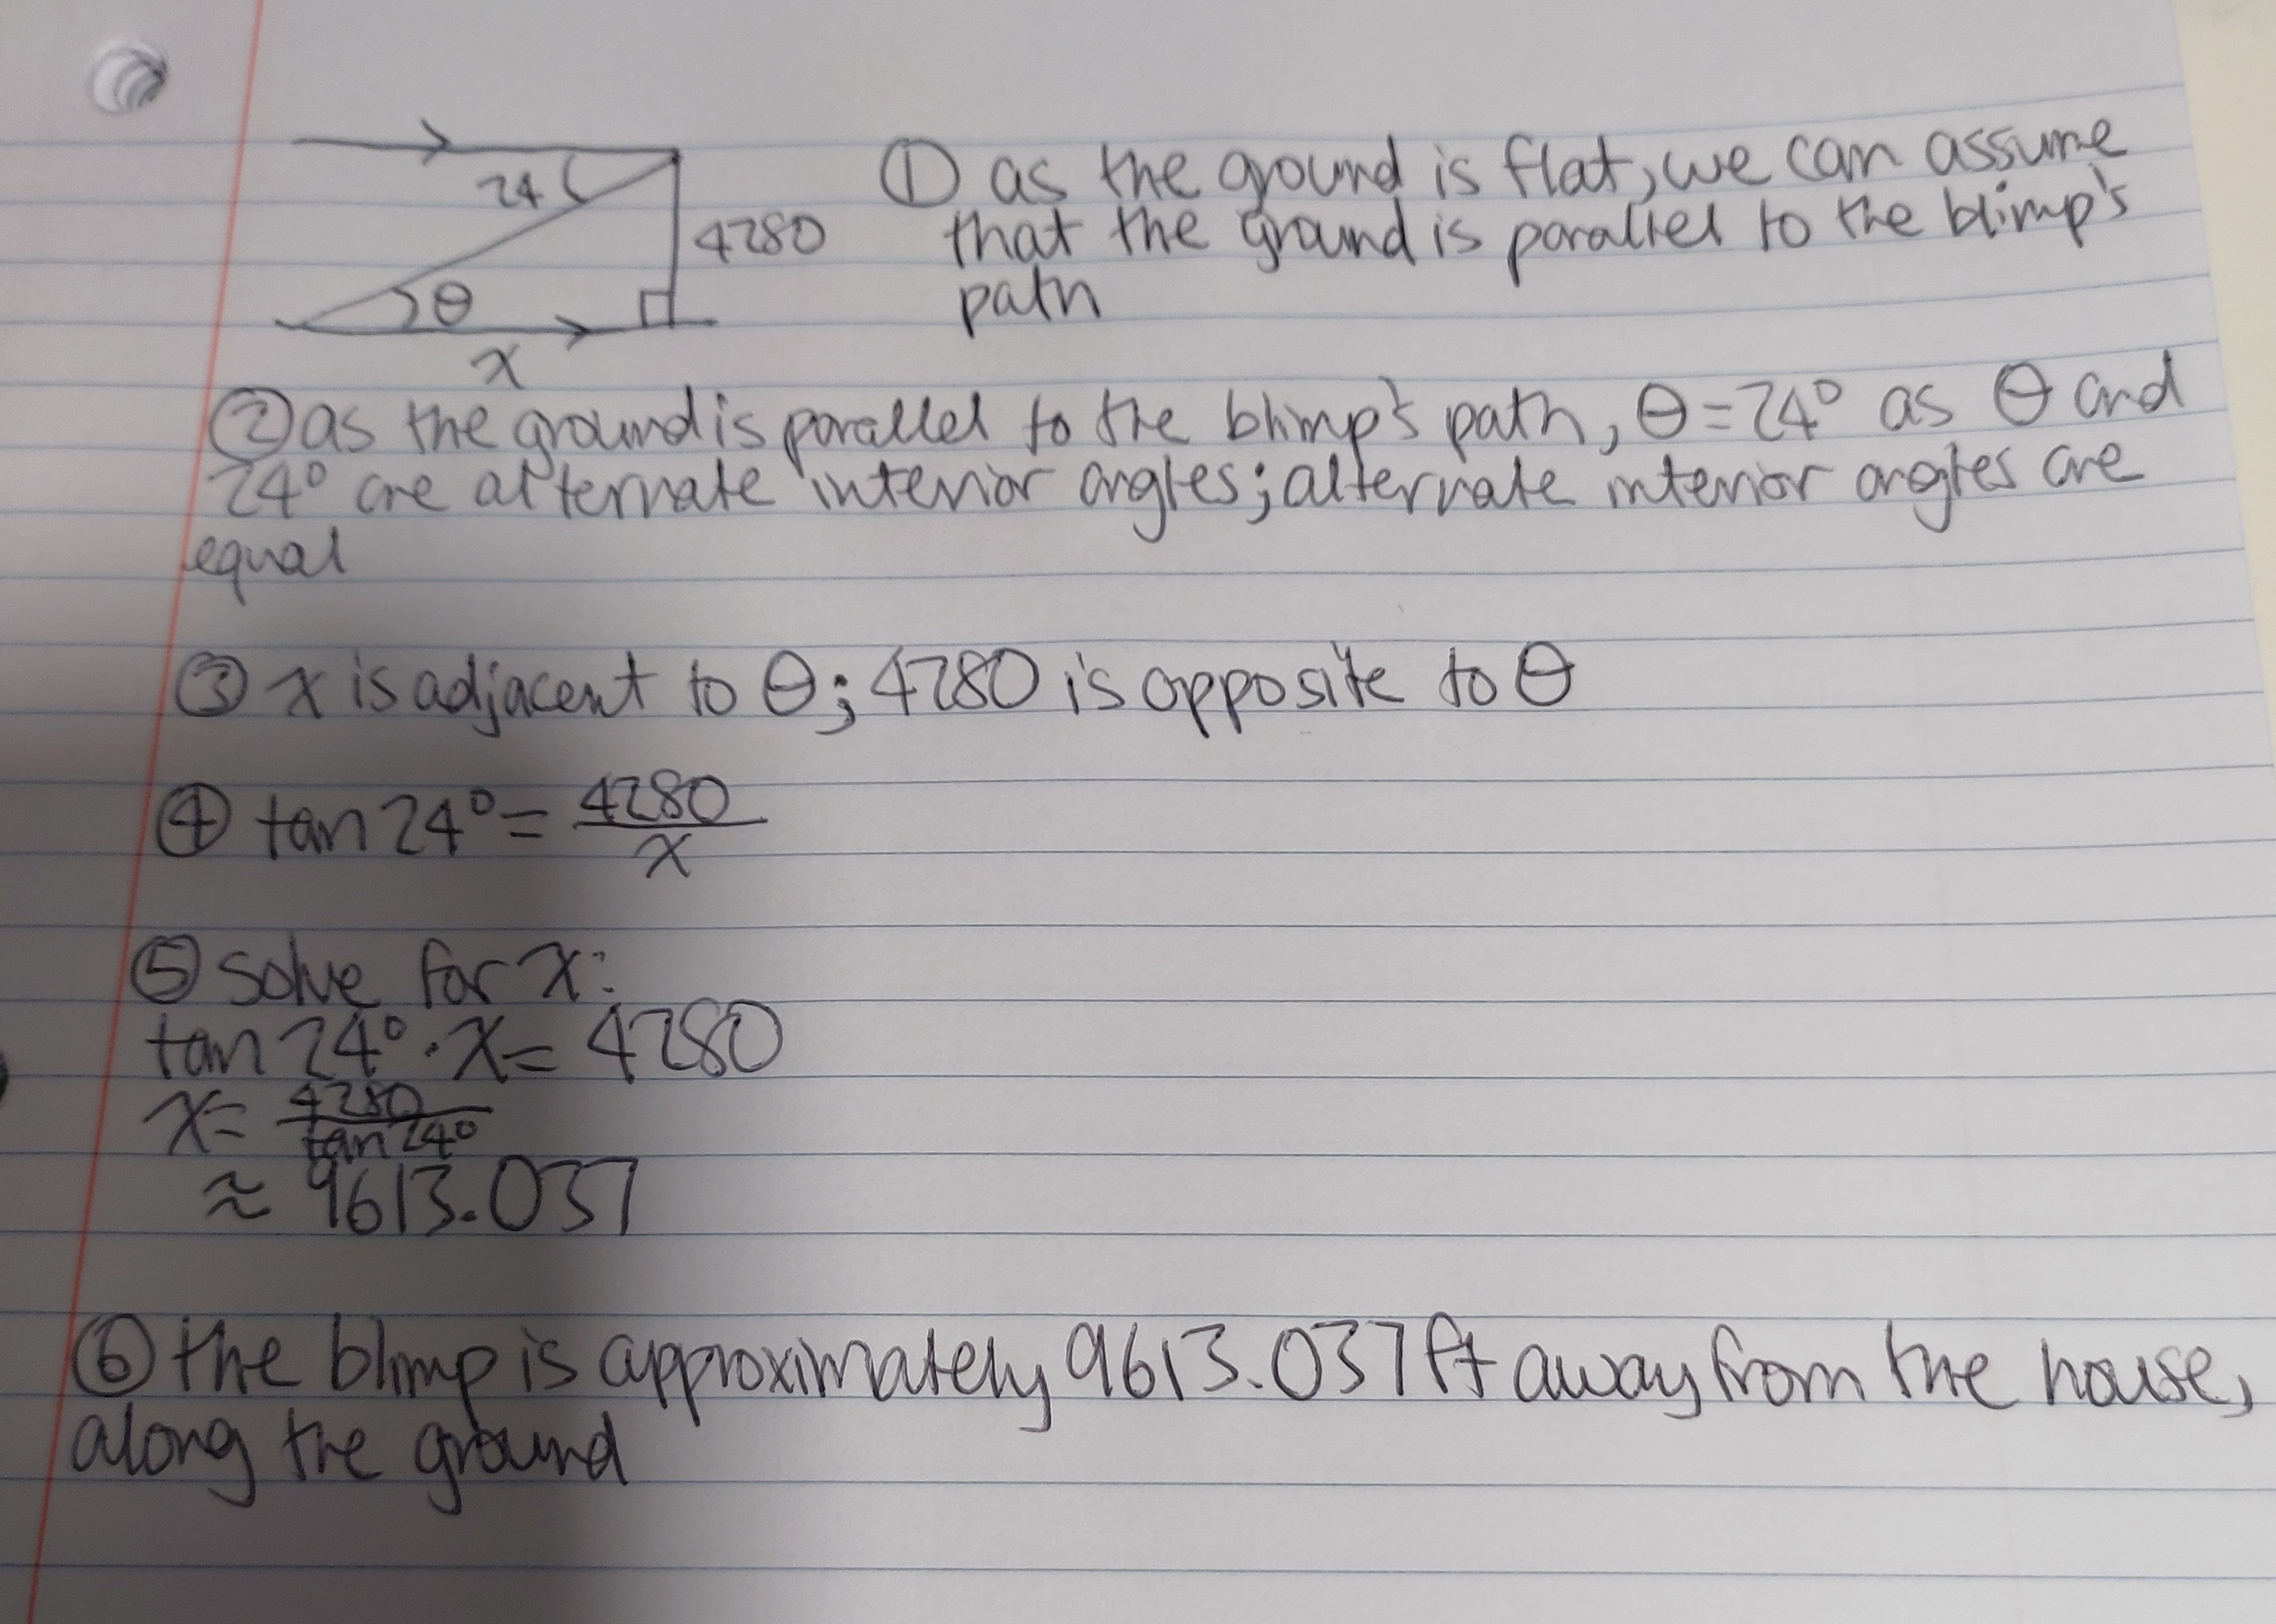 24
4280
θ
x
① as the ground is flat, we can assume
that the ground is parallel to the blimp's
path
② as the ground is parallel to the blimp's path, θ = 24° as θ and
24° are alternate interior angles; alternate interior angles are
equal
③ x is adjacent to θ; 4280 is opposite to θ
④ tan 24° = 4280/x
⑤ solve for x:
tan 24° · x = 4280
x = 4280/tan 24°
≈ 9613.037
⑥ the blimp is approximately 9613.037 ft away from the house,
along the ground